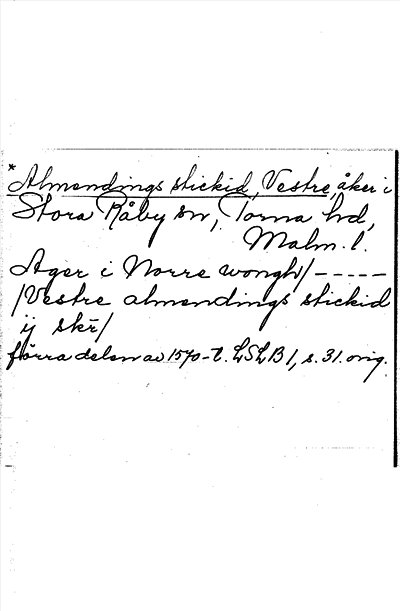 *Almendings stickid, Vestre, åker i
Stora Råby sn, Torna hd,
Malm. l.
Ager i Norre wongh/-----
/Vestre almendings stickid
ij skr/
förra delen av 1570-t. LSLB1, s. 31. orig.